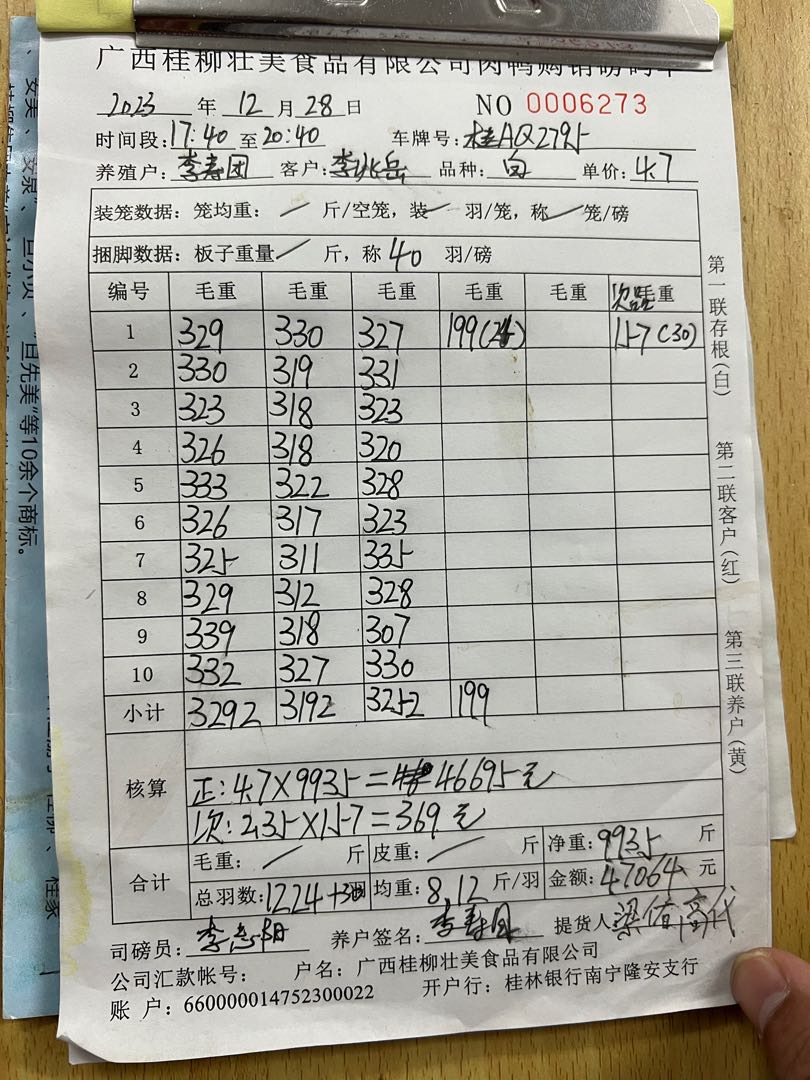 广西桂柳壮美食品有限公司肉鸭购销磅码单
2023 年 12 月 28 日 NO 0006273
时间段:17:40 至 20:40 车牌号:桂AQ2795
养殖户:李寿团 客户:李兆岳 品种:白 单价:4.7
装笼数据:笼均重: / 斤/空笼,装 / 羽/笼,称 / 笼/磅
捆脚数据:板子重量 / 斤,称 40 羽/磅
编号 毛重 毛重 毛重 毛重 毛重 次品毛重
1 329 330 327 199(24) 157(30)
2 330 319 331
3 323 318 323
4 326 318 320
5 333 322 328
6 326 317 323
7 325 311 335
8 329 312 328
9 339 318 307
10 332 327 330
小计 3292 3192 3252 199
核算
正:4.7×9935=46695元
次:2.35×157=369元
合计
毛重: / 斤 皮重: / 斤 净重:9935 斤
总羽数:1224+30 均重:8.12 斤/羽 金额:47064 元
司磅员:李志阳 养户签名:李寿团 提货人
公司汇款帐号: 户名:广西桂柳壮美食品有限公司
账 户:660000014752300022 开户行:桂林银行南宁隆安支行
第一联存根(白)
第二联客户(红)
第三联养户(黄)
目先美"等10余个商标。